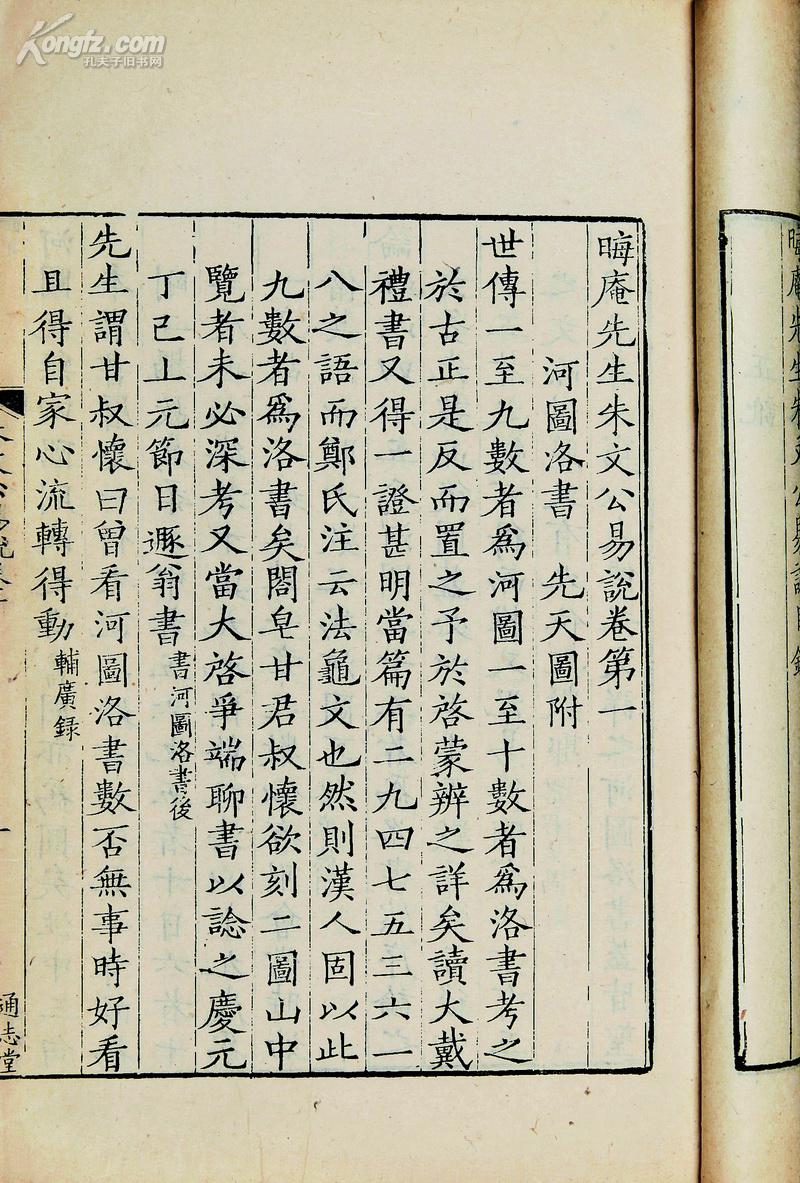 Kongfz.com
孔夫子旧书网
晦庵先生朱文公易說卷第一
河圖洛書　先天圖附
世傳一至九數者爲河圖一至十數者爲洛書考之
於古正是反而置之予於啓蒙辨之詳矣讀大戴
禮書又得一證甚明當篇有二九四七五三六一
八之語而鄭氏注云法龜文也然則漢人固以此
九數者爲洛書矣閤皂甘君叔懷欲刻二圖山中
覽者未必深考又當大啓爭端聊書以諗之慶元
丁巳上元節日遯翁書書河圖洛書後
先生謂甘叔懷曰曾看河圖洛書數否無事時好看
且得自家心流轉得動輔廣録
通志堂